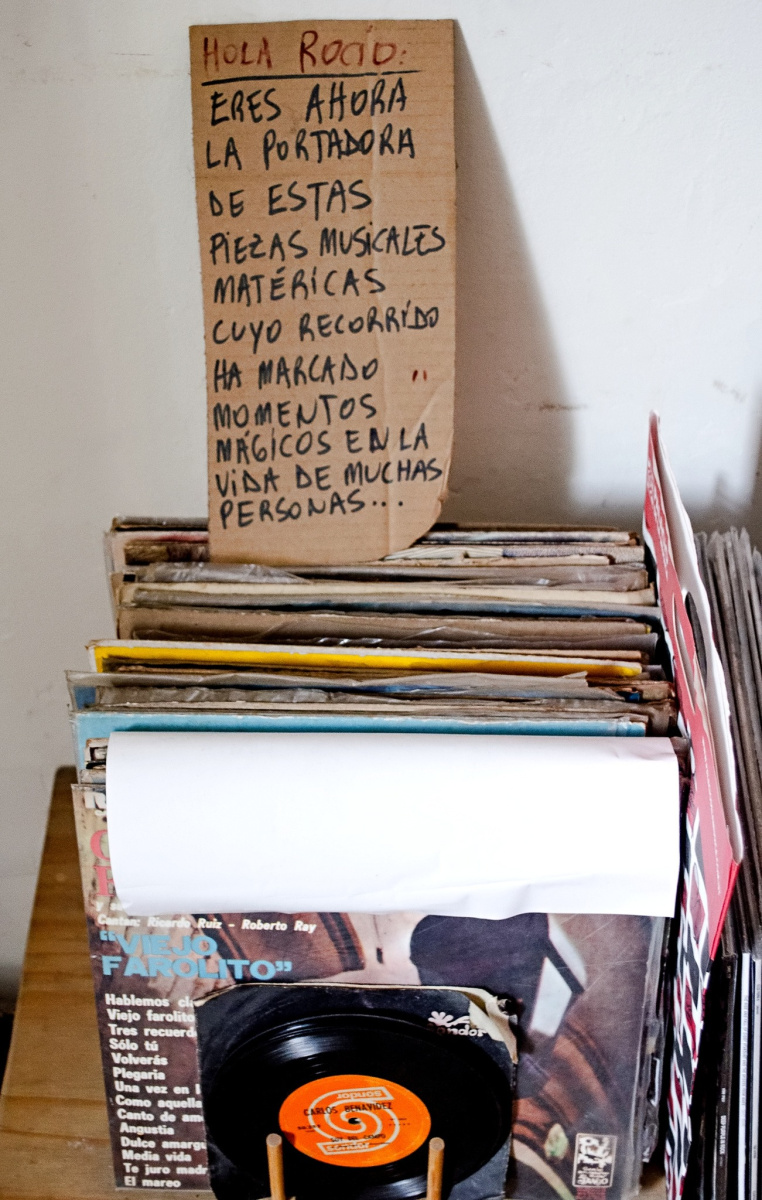 HOLA ROCÍO:
ERES AHORA
LA PORTADORA
DE ESTAS
PIEZAS MUSICALES
MATÉRICAS
CUYO RECORRÍDO
HA MARCADO
MOMENTOS
MÁGICOS EN LA
VIDA DE MUCHAS
PERSONAS...
Cantan: Ricardo Ruiz - Roberto Ray
"VIEJO
FAROLITO"
Hablemos
Viejo farolito
Tres
Sólo tú
Volverás
Plegaria
Una vez en
Como
Canto de
Angustia
Dulce
Media vida
Te juro
El mareo
sondor
CARLOS BENAVIDEZ
SOY DEL CAMPO
sondor
TANGO